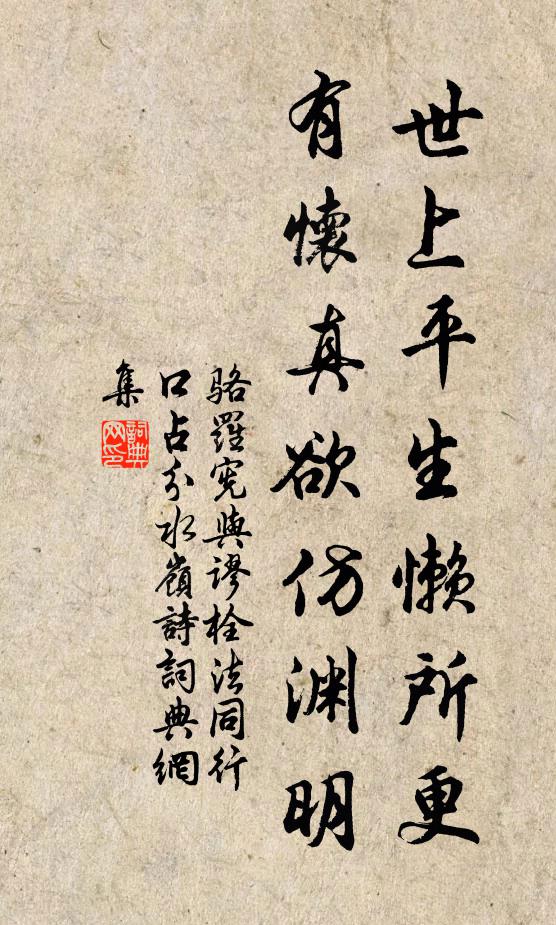 世上平生懶所更
有懷真欲仿淵明
駱羅憲與謬栓法同行
口占分水嶺詩詞典網
集
詞典网印